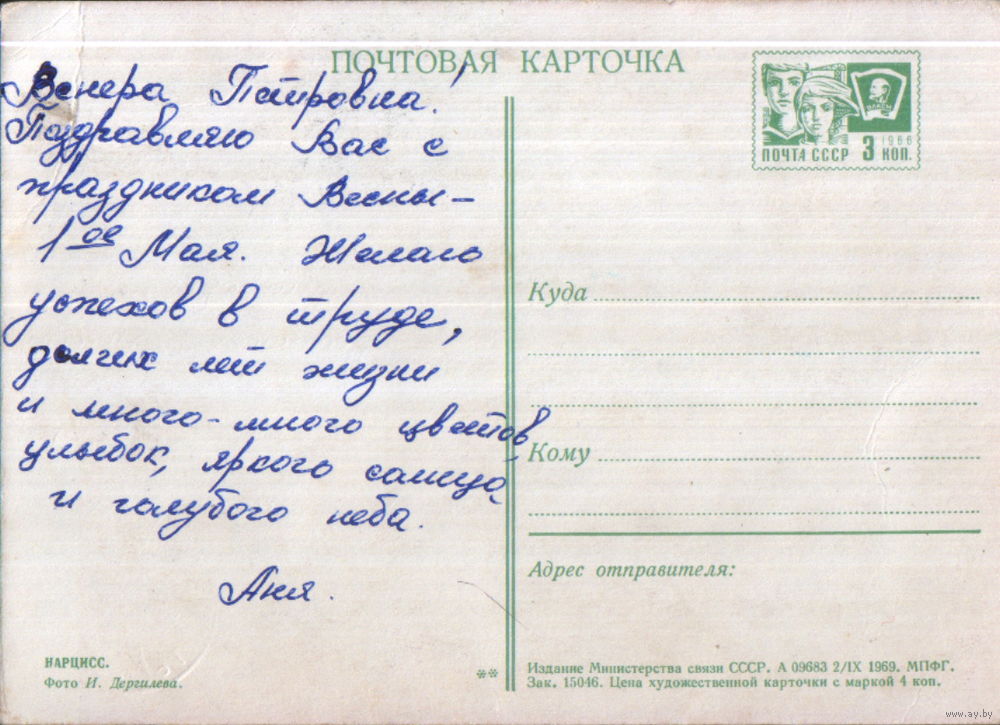 ПОЧТОВАЯ КАРТОЧКА
Венера Петровна!
Поздравляю Вас с
праздником Весны –
1ое Мая. Желаю
успехов в труде,
долгих лет жизни
и много-много цветов,
улыбок, яркого солнца
и голубого неба.
Аня.
НАРЦИСС.
Фото И. Дергилева.
**
ВЛКСМ
1966
ПОЧТА СССР 3 КОП.
Куда
Кому
Адрес отправителя:
Издание Министерства связи СССР. А 09683 2/IX 1969. МПФГ.
Зак. 15046. Цена художественной карточки с маркой 4 коп.
www.ay.by